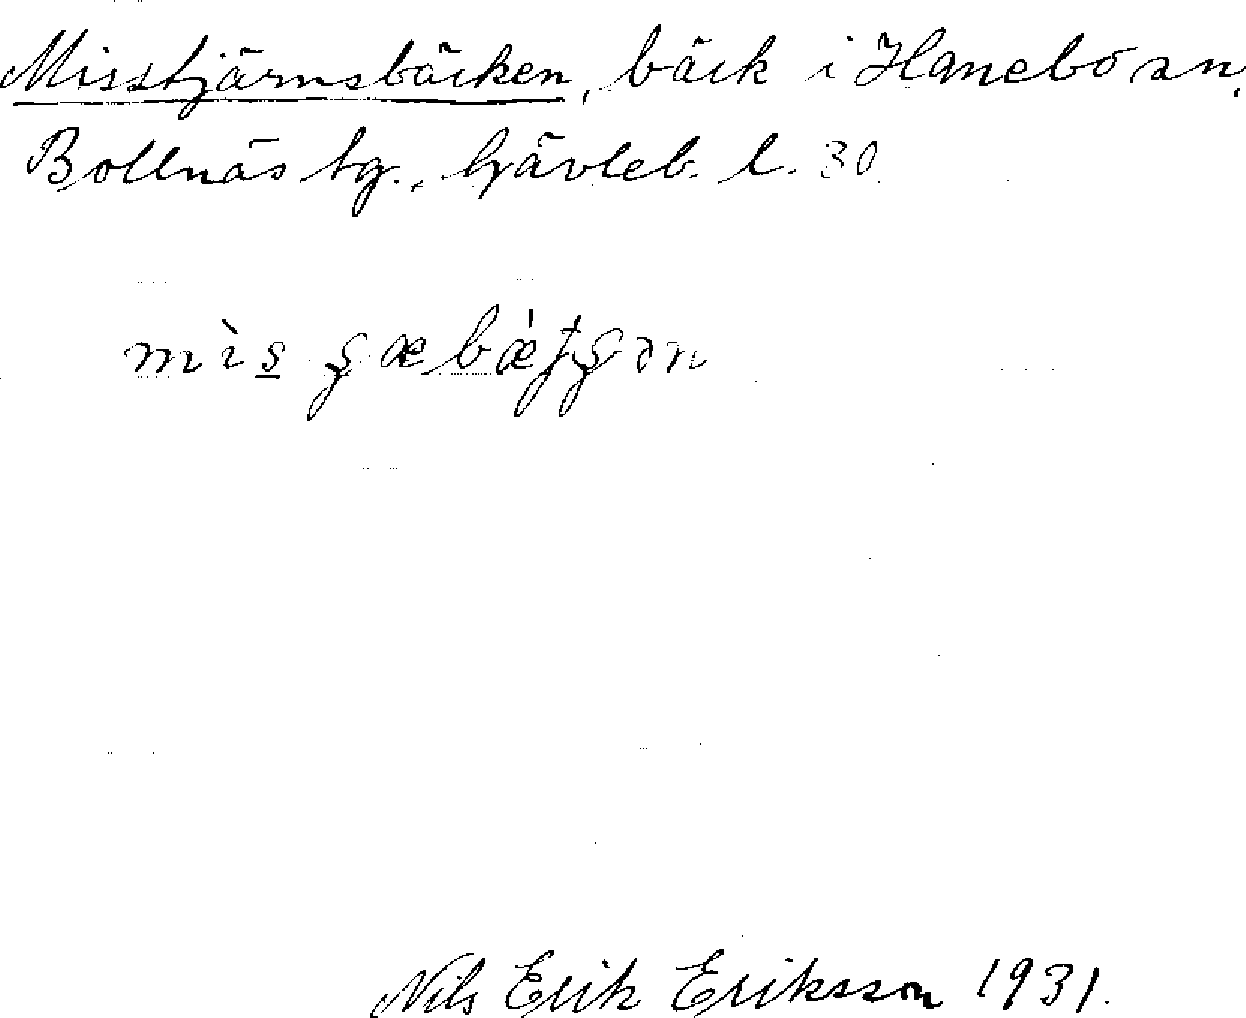 Misstjärnsbäcken, bäck i Hanebo sn,
Bollnäs tg., Gävleb. l. 30.
Nils Erik Eriksson 1931.